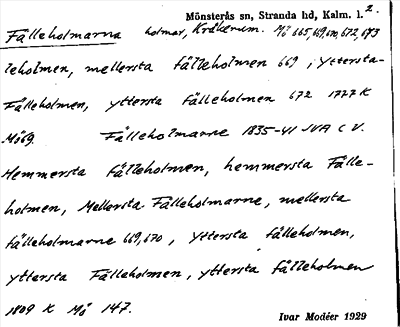 Mönsterås sn, Stranda hd, Kalm. l. 2.
Fälleholmarna holmar, Kråkerum. Mö 665, 669, 670, 672, 673
leholmen, mellersta fälleholmen 669, Yttersta-
Fälleholmen, yttersta Fälleholmen 672 1727 K
Mö 69. Fälleholmarne 1835-41 JVA C V.
Hemmersta fälleholmen, hemmersta Fälle-
holmen, Mellersta Fälleholmarne, mellersta
fälleholmarne 669,670, Yttersta fälleholmen,
yttersta Fälleholmen, yttersta fälleholmen
1809 K Mö 147.
Ivar Modéer 1929